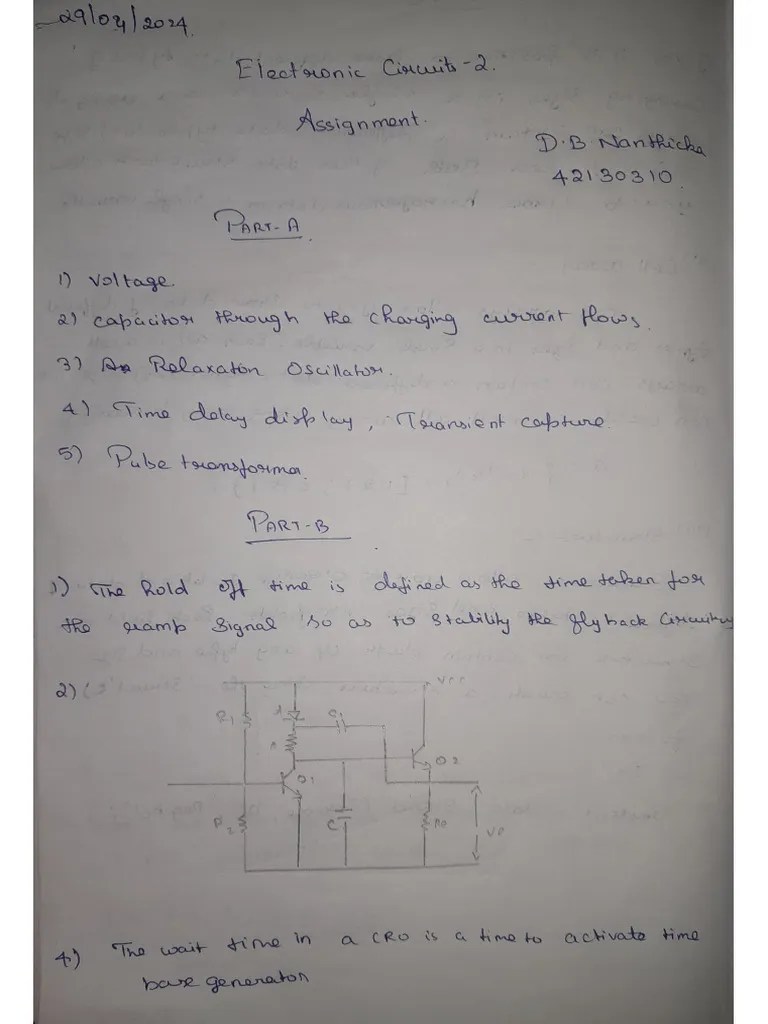 29/04/2024.
Electronic Circuits-2.
Assignment.
D.B Nanthicka
42130310.
PART-A
1) Voltage.
2) capacitor through the charging current flows.
3) Relaxation Oscillator.
4) Time delay display, Transient capture.
5) Pulse transforma.
PART-B
1) The hold off time is defined as the time taken for
the ramp signal so as to stability the flyback Circuitry
2)
Vcc
R1
C1
R
Q1
Q2
R2
C
Re
4) The wait time in a CRO is a time to activate time
base generator